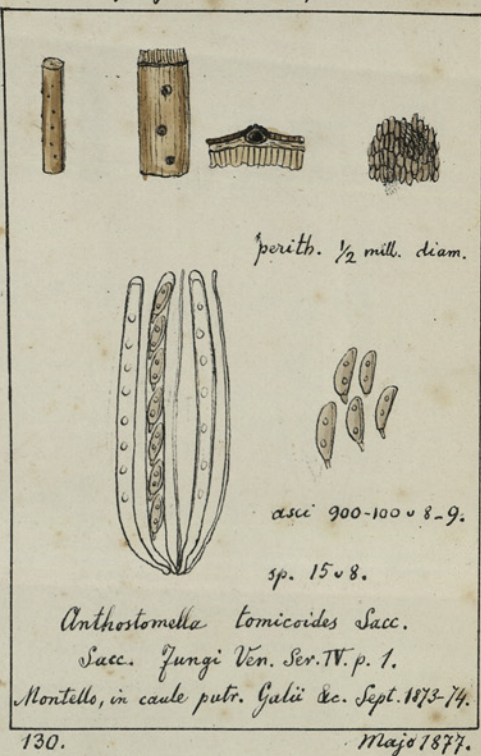 perith. 1/2 mill. diam.
asci 900-100 ᴗ 8-9.
sp. 15 ᴗ 8.
Anthostomella tomicoides Sacc.
Sacc. Fungi Ven. Ser. IV. p. 1.
Montello, in caule putr. Galii &c. Sept. 1873-74.
130.
Majo 1877.